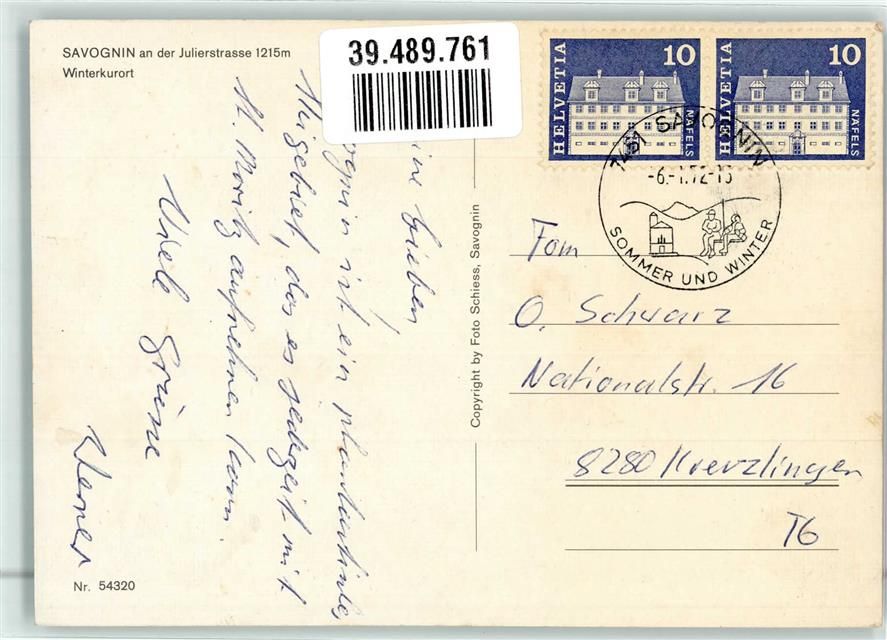 SAVOGNIN an der Julierstrasse 1215m
Winterkurort
39.489.761
HELVETIA 10 NÄFELS
HELVETIA 10 NÄFELS
7451 SAVOGNIN
-6.-1.72-
SOMMER UND WINTER
Lieben,
ist ein phantastisches
Skigebiet, das es jederzeit mit
St. Moritz aufnehmen kann.
Viele Grüsse
Werner
Copyright by Foto Schiess, Savognin
Fam
O. Schwarz
Nationalstr. 16
8280 Kreuzlingen
TG
Nr. 54320